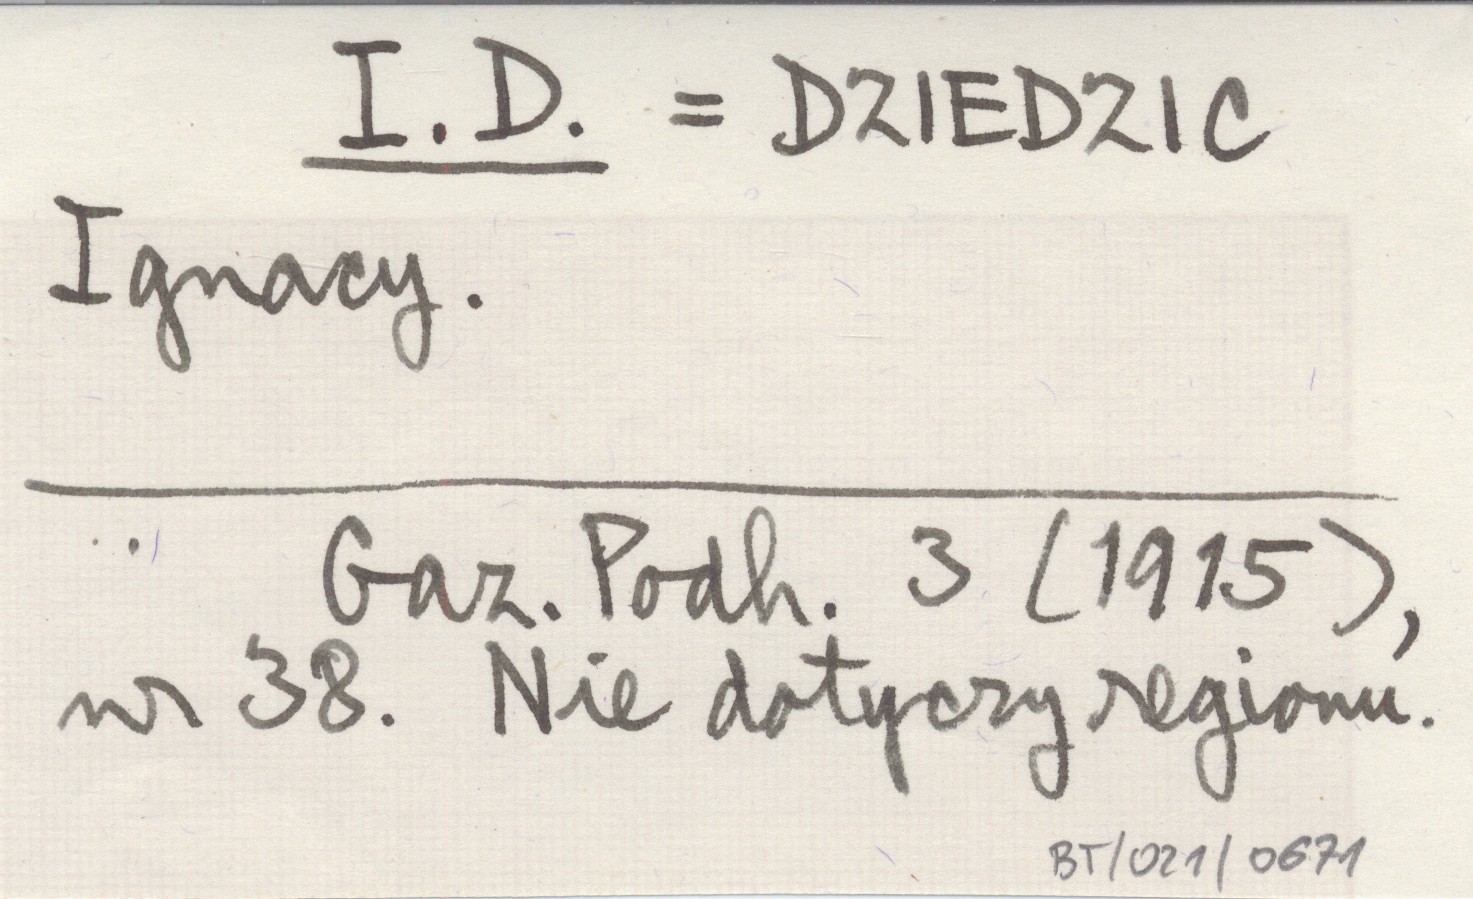 I.D. = DZIEDZIC
Ignacy.
Gaz. Podh. 3 (1915),
nr 38. Nie dotyczy regionu.
BT/021/0671